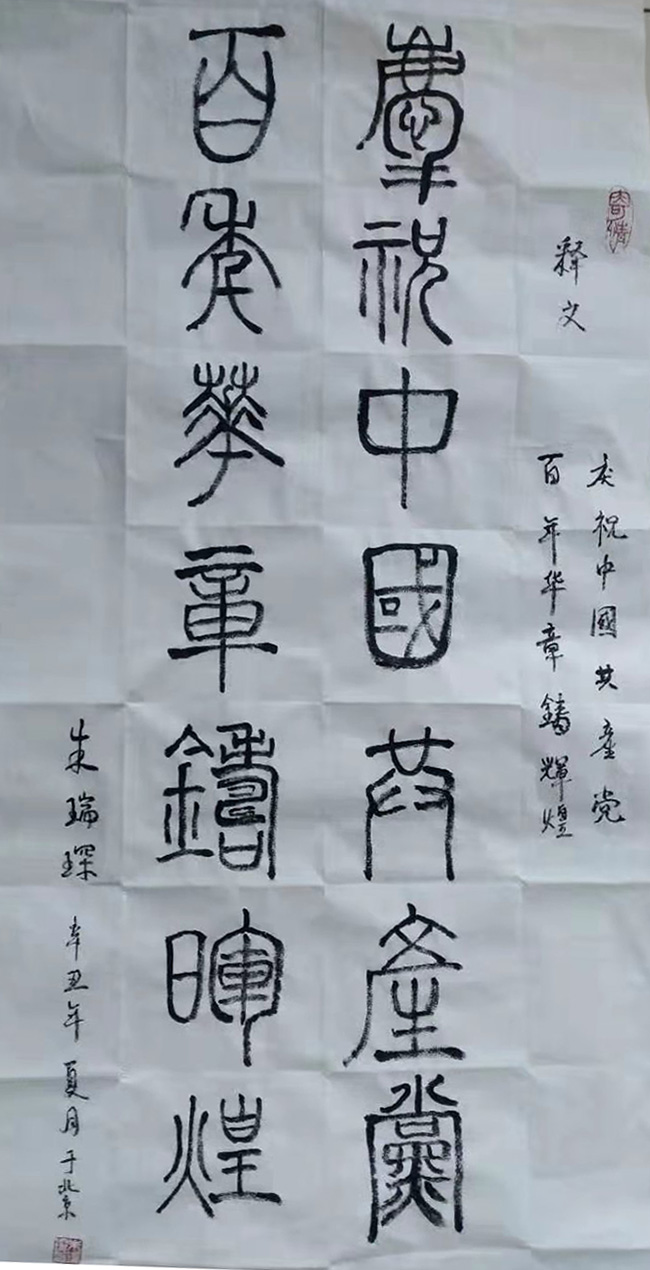 寄情
释文
庆祝中國共產党
百年华章鑄輝煌
慶祝中國共產黨
百年華章鑄暉煌
朱瑞琛 辛丑年夏月于北京